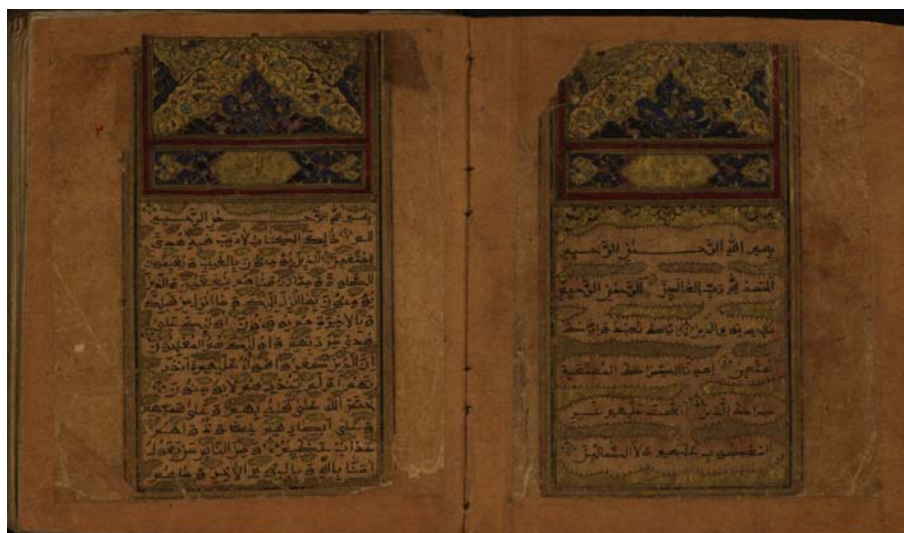 بسم الله الرحمن الرحيم
الحمد لله رب العالمين الرحمن الرحيم
ملك يوم الدين اياك نعبد واياك
نستعين اهدنا الصراط المستقيم
صراط الذين انعمت عليهم غير
المغضوب عليهم ولا الضالين
بسم الله الرحمن الرحيم
الم ذلك الكتاب لا ريب فيه هدى
للمتقين الذين يؤمنون بالغيب ويقيمون
الصلوة ومما رزقناهم ينفقون والذين
يؤمنون بما انزل اليك وما انزل من قبلك
وبالاخرة هم يوقنون اولئك على
هدى من ربهم واولئك هم المفلحون
ان الذين كفروا سواء عليهم ءانذر
تهم ام لم تنذرهم لا يؤمنون
ختم الله على قلوبهم وعلى سمعهم
وعلى ابصارهم غشاوة ولهم
عذاب عظيم ومن الناس من يقول
امنا بالله وباليوم الاخر وما هم